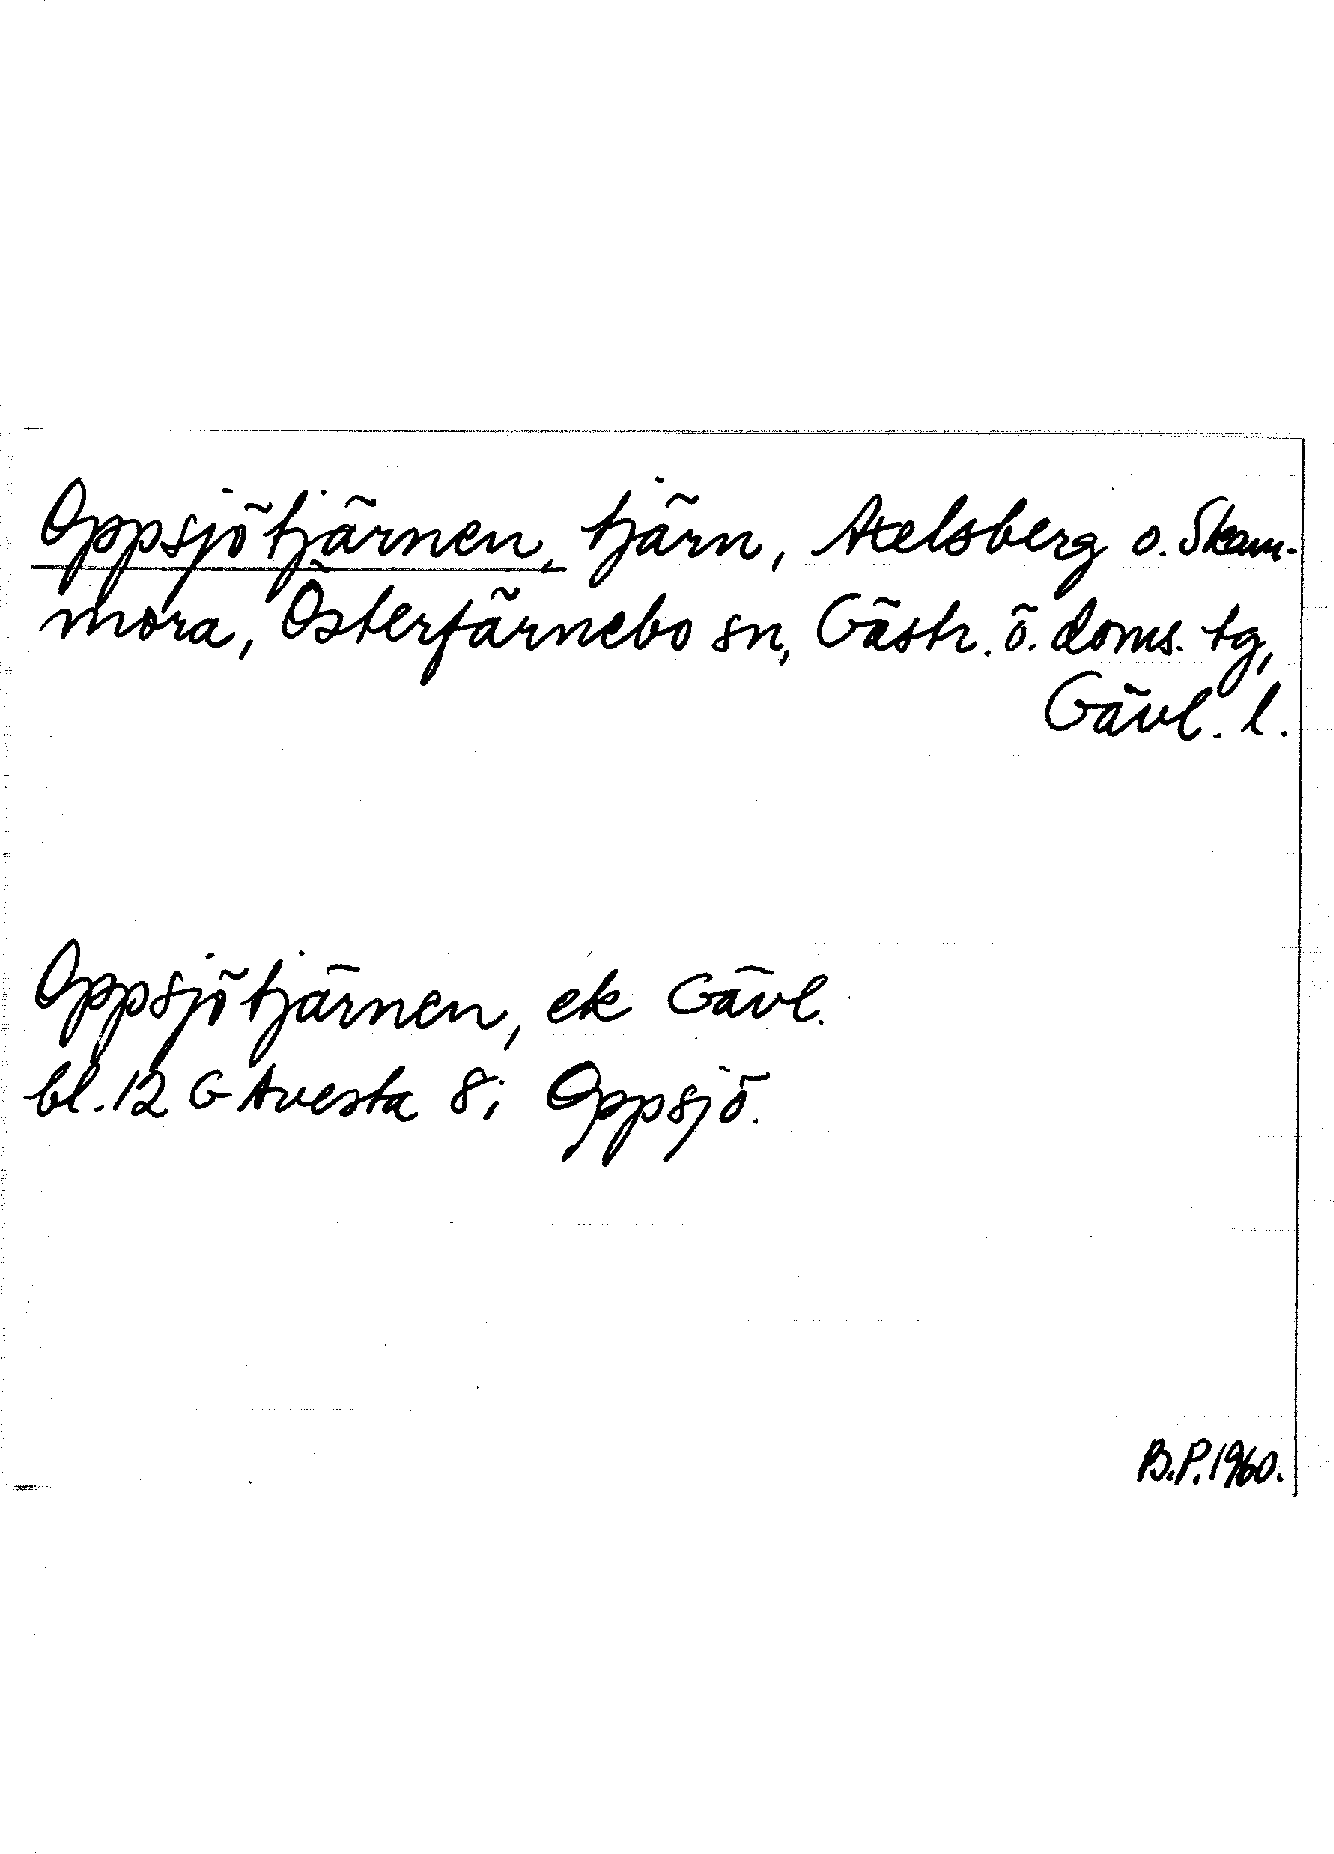 Oppsjötjärnen, tjärn, Axelsberg o. Skam-
mora, Österfärnebo sn, Gästr. ö. doms. tg,
Gävl. l.
Oppsjötjärnen, ek Gävl.
bl. 12 G Avesta 8 i Oppsjö.
B.P. 1960.